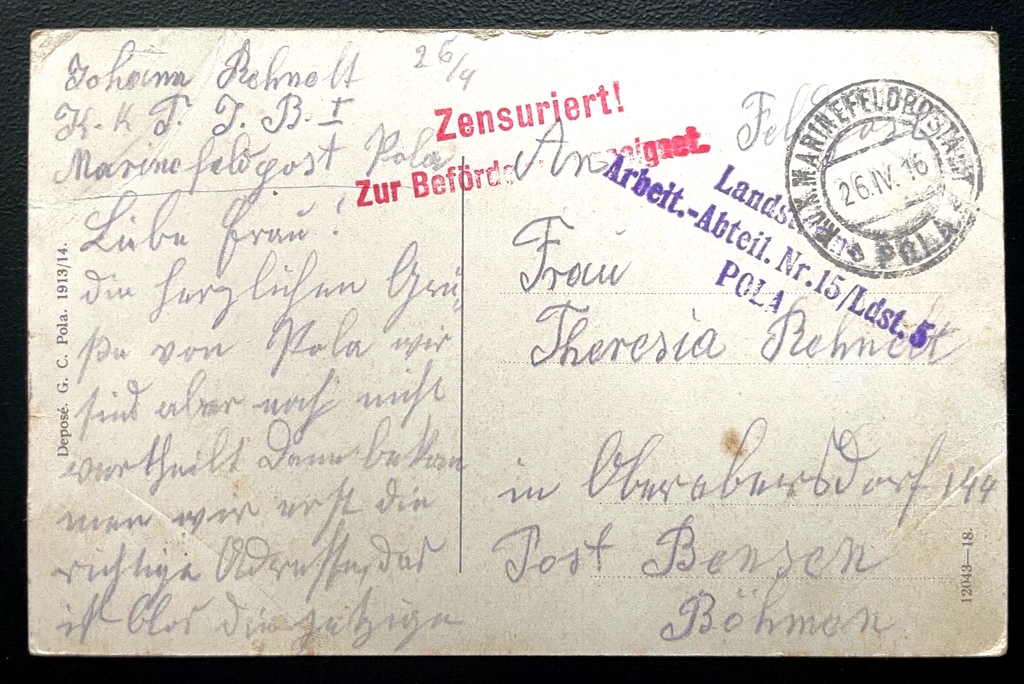 Johann Rehnelt 26/4
K. k. T. J. B. I
Marinefeldpost Pola
Liebe Frau!
die herzlichen Grü-
ße von Pola wir
sind aber noch nicht
vertheilt dann bekom
men wir erst die
richtige Adresse, das
ist blos die jetzige
Deposé. G. C. Pola. 1913/14.
Zensuriert!
Zur Beförde
Feldpost
An
Frau
Theresia Rehnelt
in Oberebersdorf 144
Post Bensen
Böhmen
Landst
Arbeit.-Abteil. Nr. 15/Ldst. 5
POLA
K.u.K. MARINEFELDPOSTAMT
26.IV.16
POLA
12043—18.